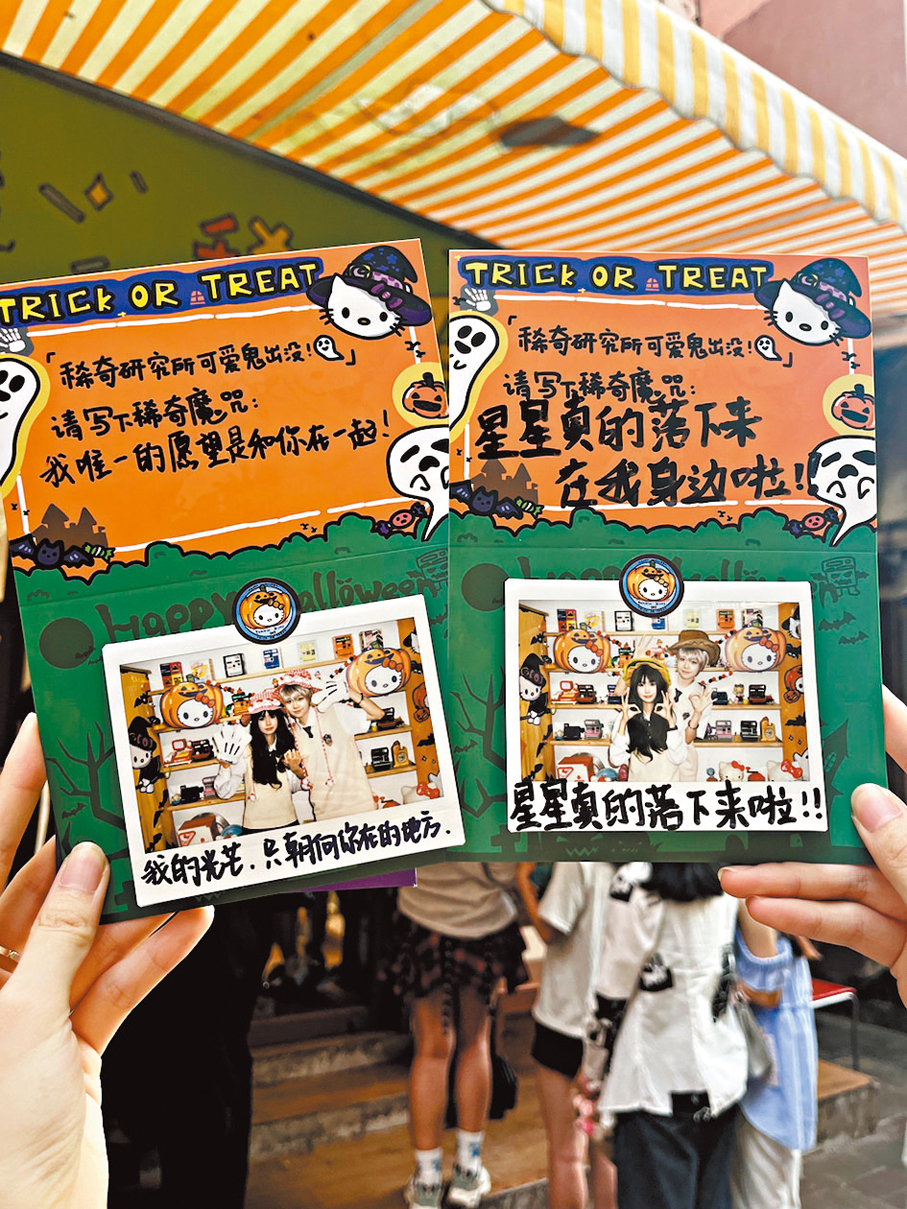 TRICK OR TREAT
「稀奇研究所可爱鬼出没!」
请写下稀奇魔咒:
我唯一的愿望是和你在一起!
Happy Halloween
我的光芒.只朝向你在的地方.
TRICK OR TREAT
「稀奇研究所可爱鬼出没!」
请写下稀奇魔咒:
星星真的落下来
在我身边啦!!
星星真的落下来啦!!